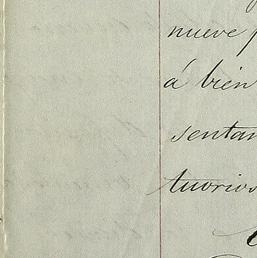 nueve p
á bien
sentan
tuorios